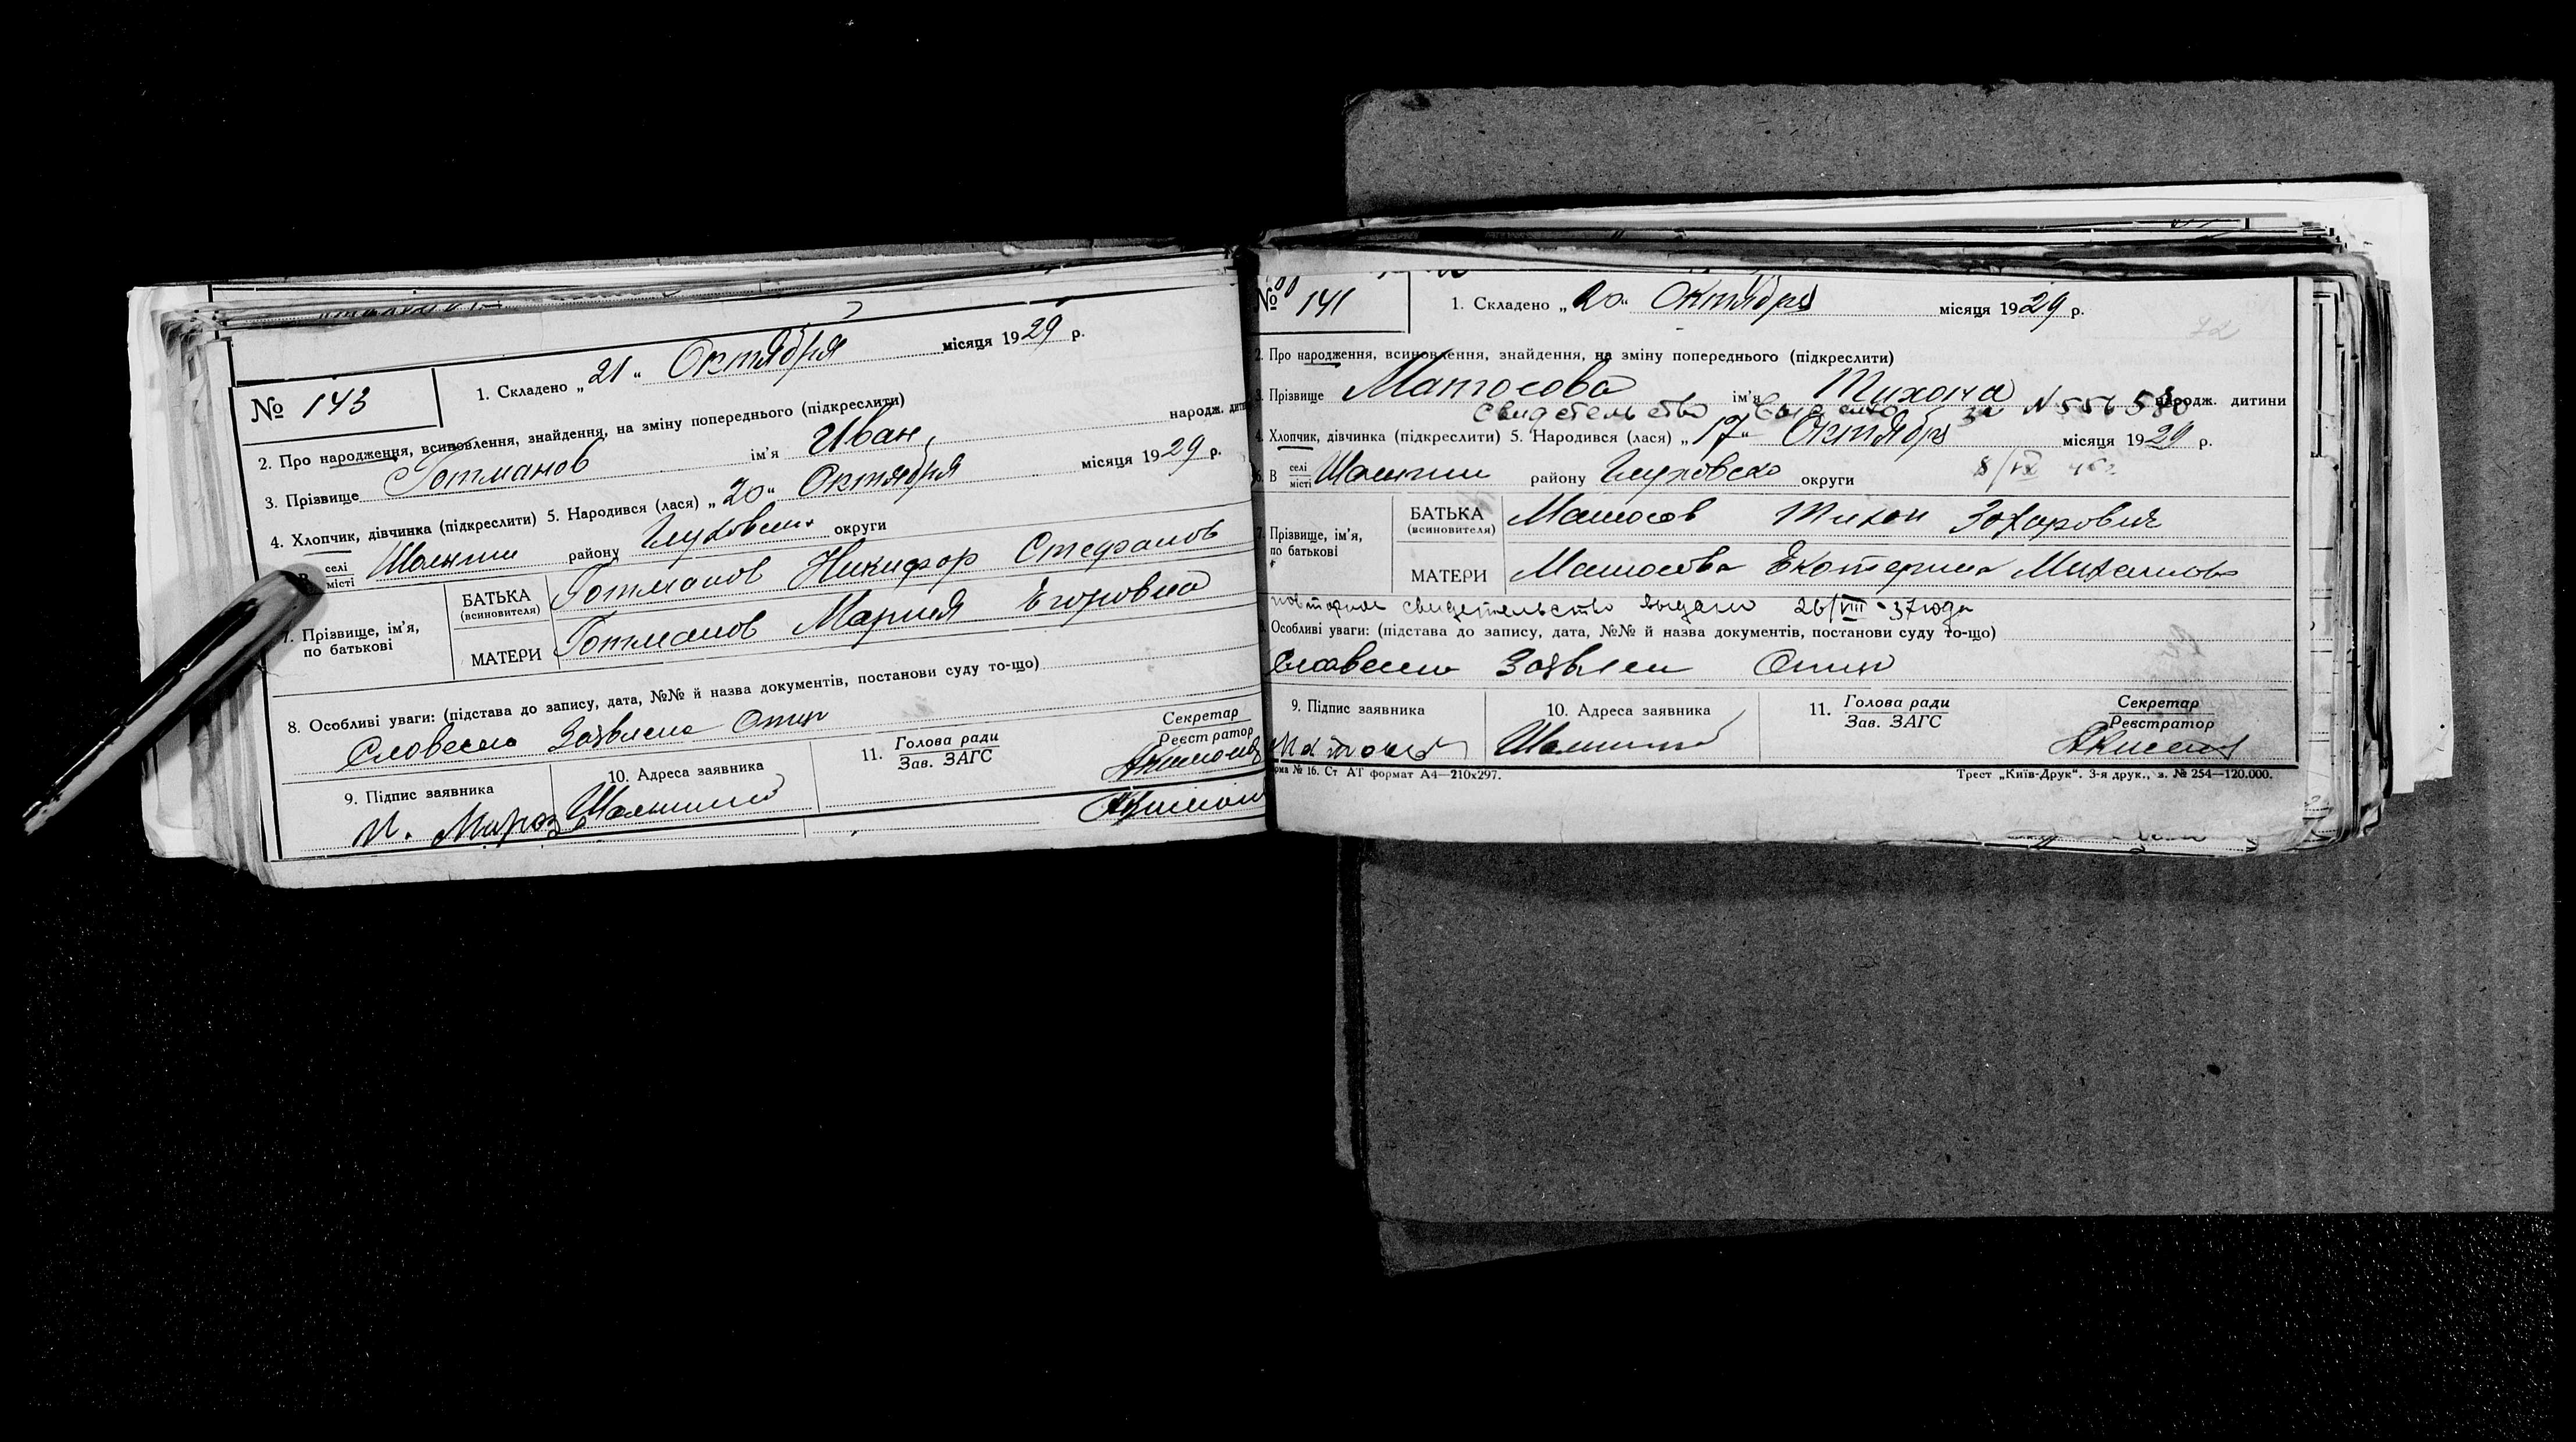 № 143
1. Складено „21“ Октября місяця 1929 р.
2. Про народження, всиновлення, знайдення, на зміну попереднього (підкреслити)
3. Прізвище Готманов ім'я Иван народж. дити
4. Хлопчик, дівчинка (підкреслити) 5. Народився (лася) „20“ Октября місяця 1929 р.
селі
місті району округи
7. Прізвище, ім'я, по батькові
БАТЬКА (всиновителя) Готманов Никифор Стефанов
МАТЕРИ Готманов Мария Егоровна
8. Особливі уваги: (підстава до запису, дата, №№ й назва документів, постанови суду то-що)
Словесно Заявлено Отцу
9. Підпис заявника
10. Адреса заявника
11. Голова ради
Зав. ЗАГС
Секретар
Реєстратор
№ 141
1. Складено „20“ Октября місяця 1929 р.
2. Про народження, всиновлення, знайдення, на зміну попереднього (підкреслити)
3. Прізвище Матосова ім'я Тихона народж. дитини
свидетельство за N 556580
4. Хлопчик, дівчинка (підкреслити) 5. Народився (лася) „17“ Октября місяця 1929 р.
6. В селі
місті району округи
7. Прізвище, ім'я, по батькові
БАТЬКА (всиновителя) Матосов Тихон Захарович
МАТЕРИ Матосова Екотерина
повторное свидетельство выдано 26/VIII-37 года
8. Особливі уваги: (підстава до запису, дата, №№ й назва документів, постанови суду то-що)
9. Підпис заявника
10. Адреса заявника
11. Голова ради
Зав. ЗАГС
Секретар
Реєстратор
Форма № 16. Ст АТ формат А4—210х297.
Трест „Київ-Друк“. 3-я друк., з. № 254—120.000.